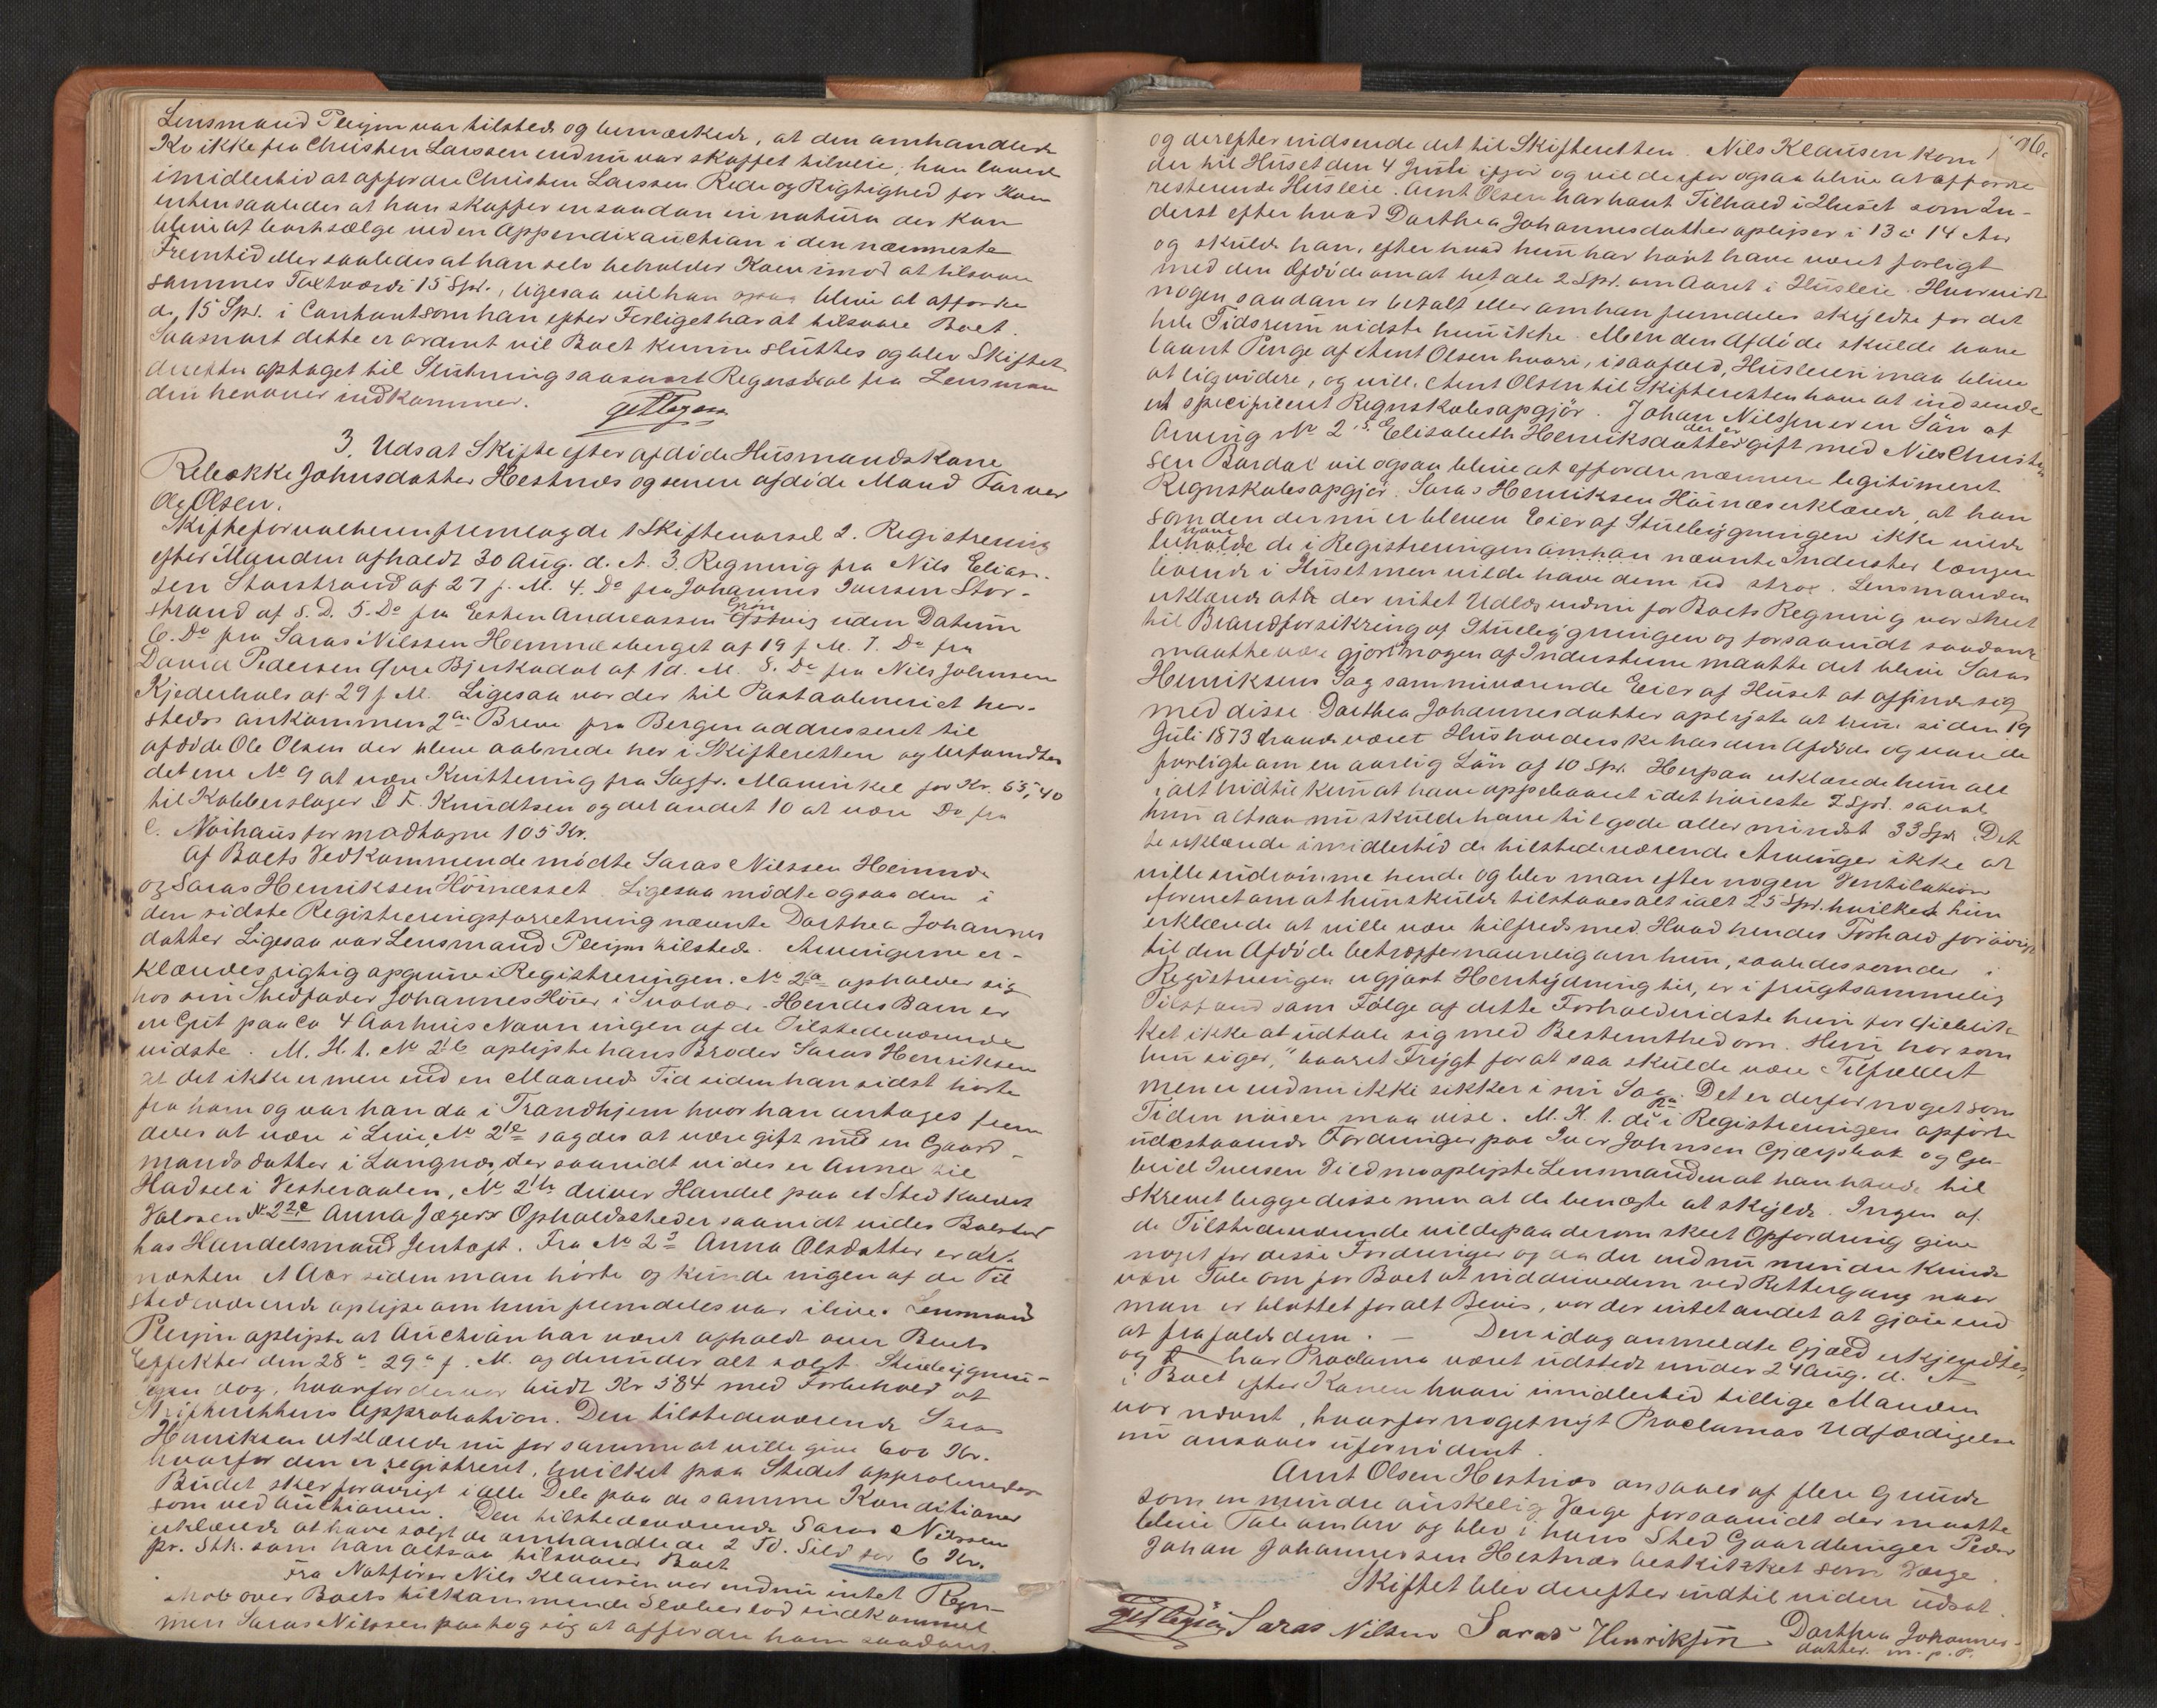 Lensmand Pleijm var tilstede og bemærkede, at den omhandlede
Ko ikke fra Christen Larssen endnu var skaffet tilveie; han lovede
imidlertid at affordre Christen Larssen Rede og Rigtighed for Koen
enten saaledes at han skaffer en saadan in natura der kan
blive at bortsælge ved en Appendixauction i den nærmeste
Fremtid eller saaledes at han selv beholder Koen imod at tilsvare
sammes Taxtværdi 15 Spd., ligesaa vil han blive at affordre
de 15 Spd. i Contant som han efter Forliget har at tilsvare Boet.
Saasnart dette er ordnet vil Boet kunne sluttes og blev Skiftet
derefter optaget til Slutning saasnart Regnskab fra Lensman
den herover indkommer.
3. Udsat Skifte efter afdøde Husmandskone
Rebækka Johnsdatter Hestnes og senere afdøde Mand
Ole Olsen.
Skifteforvalteren fremlagde 1 Skiftevarsel 2. Registrering
efter Manden afholdt 30 Aug. d. A. 3. Regning fra Nils Elias-
sen Storstrand af 27 f. M. 4. Do fra Johannes Iversen Stor-
strand af s. D. 5. Do fra Esten Andreassen uden Datum
6. Do fra Saras Nilssen Hemnesberget af 19 f. M. 7. Do fra
David Pedersen Øvre Bjerkadal af 1 d. M. 8. Do fra Nils Johnsen
Kjederhals af 29 f. M. Ligesaa var der til Postaabneriet her-
steds ankommen 2de Breve fra Bergen addresseret til
afdøde Ole Olsen der bleve aabnede her i Skifteretten og befandtes
det ene No 9 at være Kvittering fra Sagfr. for Kr. 65,40
til Kobberslager D. F. Knudtsen og det andet 10 at være Do fra
C. for modtagne 105 Kr.
Af Boets Vedkommende mødte Saras Nilssen Hemnes
og Saras Henriksen Høinæsset. Ligesaa mødte ogsaa den i
den sidste Registreringsforretning nævnte Dorthea Johannes
datter Ligesaa var Lensmand Pleijm tilstede. Arvingerne er-
klæredes rigtig opgivne i Registreringen. No 2a opholder sig
hos sin Stedfader Johannes Höier i Svolvær. Hendes Barn er
en Gut paa Ca 4 Aar hvis Navn ingen af de Tilstedeværende
vidste. M. H. t. No 2b oplyste hans Broder Saras Henriksen
at det ikke er mere end en Maaneds Tid siden han sidst hørte
fra ham og var han da i Trondhjem hvor han antages frem
deles at være i Live, No 2 sagdes at være gift med en Gaard-
mands datter i Langnæs, der saavidt vides er Annex til
Hadsel i Vesteraalen, No 2 driver Handel paa et Sted kaldet
No 2 Anna Jægers Opholdssted er saavidt vides
hos Handelsmand Jentoft. Fra No 2 Anna Olsdatter er det
næsten et Aar siden man hørte og kunde ingen af de Til
stedeværende oplyse om hun fremdeles var ilive. Lensmand
Pleijm oplyste at Auction har været afholdt over Boets
Effekter den 28 - 29 f. M. og derunder alt solgt. Stuebygnin-
gen dog, hvorfor der var budt Kr 584 med Forbehold af
Skifterettens Approbation. Den tilstedeværende Saras
Henriksen erklærede nu for samme at ville give 600 Kr.
hvorfor den er registreret, hvilket paa Stedet approberedes
Budet sker forøvrigt i alle Dele paa de samme Konditioner
som ved Auctionen. Den tilstedeværende Saras Nilssen
erklærede at have solgt de omhandlede 2 Td. Sild for 6 Kr.
pr. Stk. som han altsaa tilsvarer Boet
Fra Notfører Nils Klausen var endnu intet Regn-
skab over Boets tilkommende indkommet
men Saras Nilssen paatog sig at affordre ham saadant
96.
og derefter indsende det til Skifteretten. Nils Klausen kom
der til Huset den 4 Juli ifjor og vil derfor ogsaa blive at affordre
resterende Husleie. Arnt Olsen har havt Tilhold i Huset som In-
derst efter hvad Dorthea Johannesdatter oplyser i 13 à 14 Aar
og skulde han, efter hvad hun har hørt have været forligt
med den Afdøde om at betale 2 Spd. om Aaret i Husleie. Hvorvidt
nogen saadan er betalt eller om han fremdeles skyldte for det
hele Tidsrum vidste hun ikke. Men den Afdøde skulde have
laant Penge af Arnt Olsen hvori, i saafald, Husleien maa blive
at liqvidere, og vil Arnt Olsen til Skifteretten have at indsende
et specificeret Regnskabsopgjör. Johan Nilssen er en Sön af
Arving No 2 5. Elisabeth Henriksdatter der er gift med Nils Christen
sen Bardal vil ogsaa blive at affordre nærmere legitimeret
Regnskabsopgjör. Saras Henriksen Höinæs erklærede, at han
som den der nu er bleven Eier af Stuebygningen ikke vilde
have beholde de i Registreringen omhan nævnte Inderster længere
boende i Huset men vilde have dem ud strax. Lensmanden
erklærede at der intet Udlæg endnu for Boets Regning var skeet
til Brandforsikring af Stuebygningen og forsaavidt saadant
maatte være gjort nogen af Indersterne maatte det blive Saras
Henriksens Sag som nuværende Eier af Huset at affinde sig
med disse. Dorthea Johannesdatter oplyste at hun siden 19
Juli 1873 havde været Husholderske hos den Afdøde og vare de
forligte om en aarlig Lön af 10 Spd. Herpaa erklærede hun alt
i alt hidtil kun at have oppebaaret i det høieste 7 Spd. saa at
hun altsaa nu skulde have tilgode allermindst 33 Spd. Det
te erklærede imidlertid de tilstedeværende Arvinger ikke at
ville indrømme hende og blev man efter nogen Ventilation
forenet om at hun skulde tilstaaes alt i alt 25 Spd. hvilket hun
erklærede at ville være tilfreds med. Hvad hendes Forhold forøvrigt
til den Afdøde betræffer navnlig om hun, saaledes som der i
Registreringen er gjort Hentydning til, er i frugtsommelig
Tilstand som Følge af dette Forhold vidste hun for Øieblik-
ket ikke at udtale sig med Bestemthed om. Hun har som
hun siger, "baaret Frygt for at saa skulde være Tilfældet
men er endnu ikke sikker i sin Sag. Det er derfor noget som
Tiden nøiere maa vise. M. H. t. de i Registreringen opførte
udestaaende Fordringer paa Iver Johnsen og
Iversen oplyste Lensmanden at han havde til
skrevet begge disse men at de benægte at skylde. Ingen af
de Tilstedeværende vilde paa derom skeet Opfordring give
noget for disse Fordringer og da der endnu mindre kunde
være Tale om for Boet at inddrive dem ved Rettergang naar
man er blottet for alt Bevis, var der intet andet at gjøre end
at frafalde dem. — Den idag anmeldte Gjæld erkjendtes
og har Proclama været udstedt under 24 Aug. d. A
i Boet efter Konen hvori imidlertid tillige Manden
var nævnt, hvorfor noget nyt Proclamas Udfærdigelse
nu ansaaes ufornødent.
Arnt Olsen Hestnæs ansaaes af flere Grunde
som en mindre ønskelig Værge forsaavidt der maatte
blive Tale om Arv og blev i hans Sted Gaardbruger Peder
Johan Johannessen Hestnæs beskikket som Værge
Skiftet blev derefter indtil videre udsat.
Saras Nilsen Saras Henriksen Dorthea Johannes-
datter m. p. P.